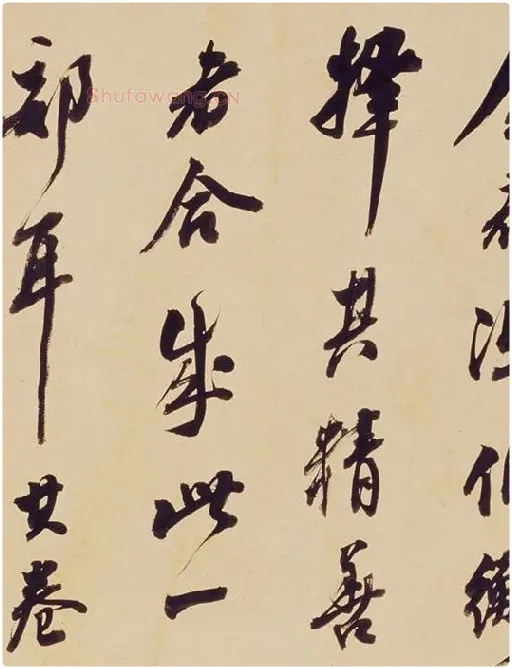 擇其精善
者合成此一
部耳其卷
Shufawang.CN